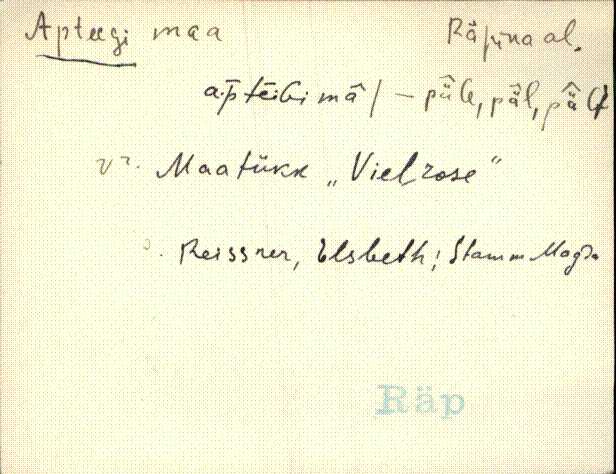 Apteegi maa Räpina al.
apteigi mâ | – pǟle, päl, pält
vr. Maatükk „Vielrose“
Reissner, Elsbeth; Stamm Magda
Räp